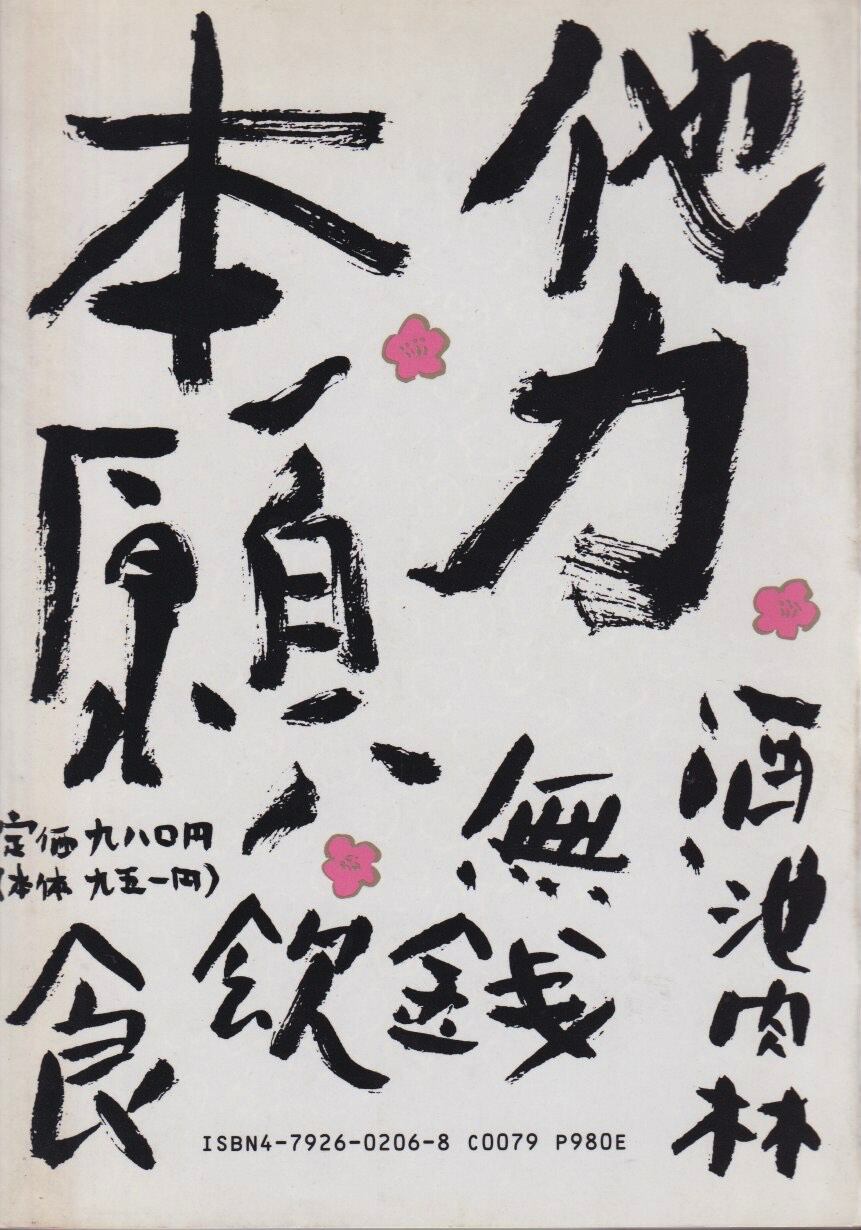 他力
本願
酒池肉林
無銭
飲
食
定価 九八〇円
(本体 九五一円)
ISBN4-7926-0206-8 C0079 P980E